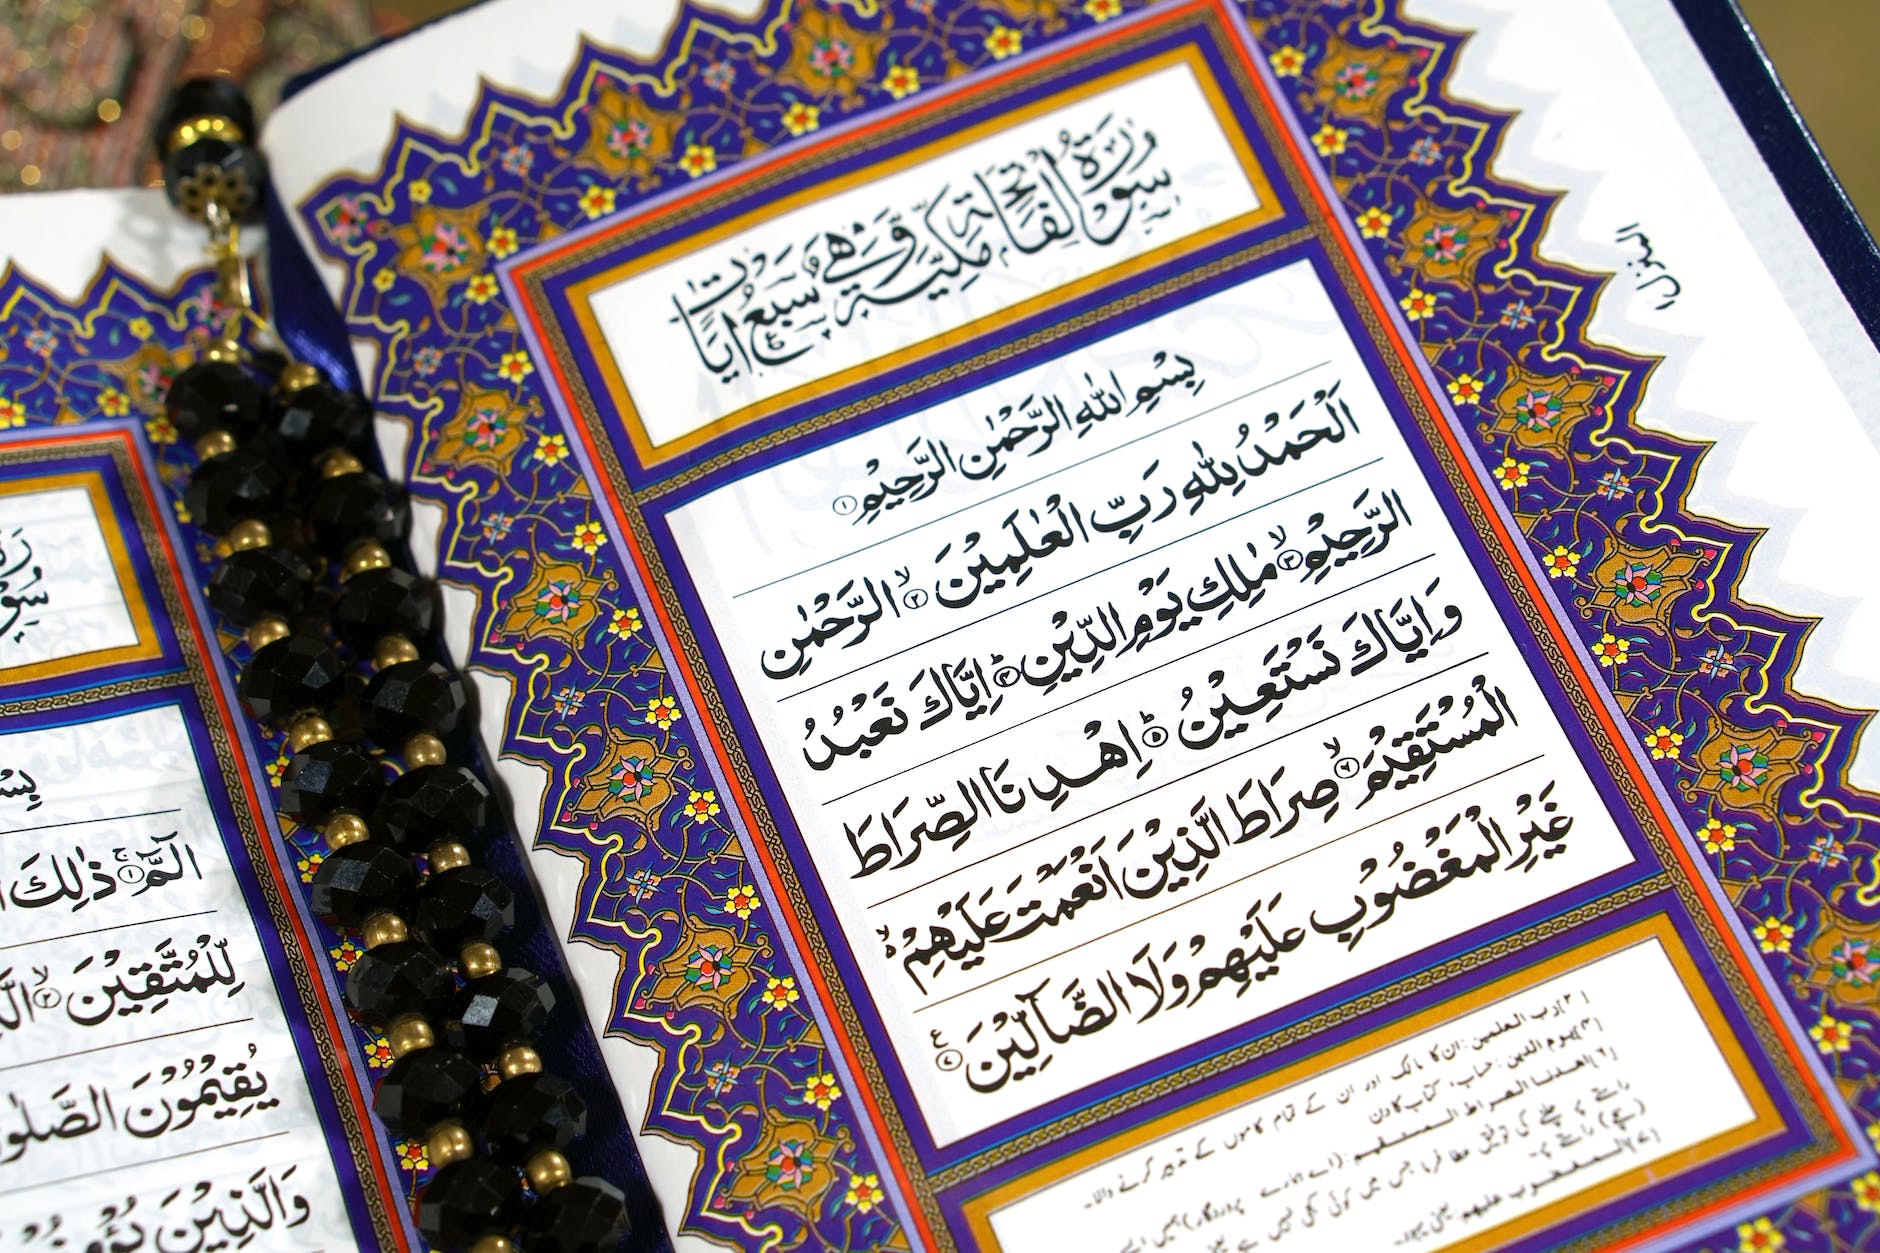 سُوْرَةُ الْفَاتِحَةِ مَكِّيَّةٌ وَّهِيَ سَبْعُ اٰيَاتٍ
المنزل ١
بِسْمِ اللهِ الرَّحْمٰنِ الرَّحِيْمِ ۝١
اَلْحَمْدُ لِلّٰهِ رَبِّ الْعٰلَمِيْنَ ۝٢ۙ الرَّحْمٰنِ
الرَّحِيْمِ ۝٣ۙ مٰلِكِ يَوْمِ الدِّيْنِ ۝٤ؕ اِيَّاكَ نَعْبُدُ
وَاِيَّاكَ نَسْتَعِيْنُ ۝٥ؕ اِهْدِنَا الصِّرَاطَ
الْمُسْتَقِيْمَ ۝٦ۙ صِرَاطَ الَّذِيْنَ اَنْعَمْتَ عَلَيْهِمْ ۙ۬
غَيْرِ الْمَغْضُوْبِ عَلَيْهِمْ وَلَا الضَّآلِّيْنَ ۝٧ع
٢) رب العلمين: ان کا مالک اور ان کے تمام کاموں کے تدبیر کرنے والا۔
٣) يوم الدين: حساب کتاب کا دن
٦) اهدنا الصراط المستقيم: (اے ہمارے پروردگار) ہمیں ایسے
راستے پر چلنے کی توفیق عطا فرما جس میں کوئی کجی نہیں ہے یعنی
راستے پر۔
٧) المغضوب عليهم: یعنی یہود۔
سُوْرَةُ
بِسْمِ
الٓمّٓ ۝١ۚ ذٰلِكَ
لِّلْمُتَّقِيْنَ ۝٢ۙ
يُقِيْمُوْنَ الصَّلٰوةَ
وَالَّذِيْنَ يُؤْمِنُوْنَ